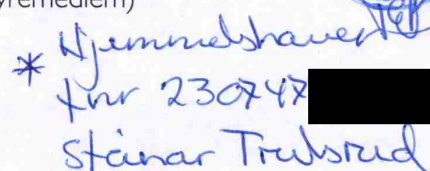 yremedlem)
* Hjemmelshaver
fnr 230747
Steinar Trulsrud